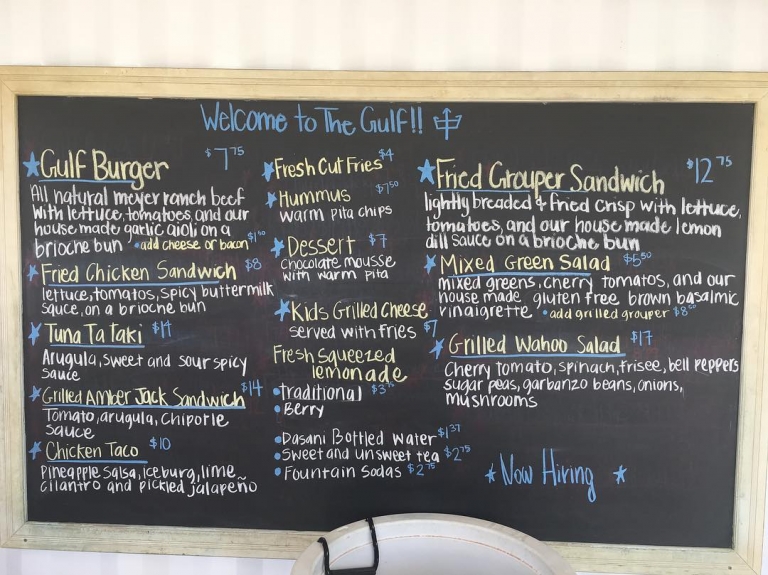 Welcome to The Gulf!!
Gulf Burger $7.75
All natural meyer ranch beef
with lettuce, tomatoes, and our
house made garlic aioli on a
brioche bun • add cheese or bacon
Fried Chicken Sandwich $8
lettuce, tomatos, spicy buttermilk
sauce, on a brioche bun
Tuna Tataki
Arugula, sweet and sour spicy
sauce
Grilled Amber Jack Sandwich $14
Tomato, arugula, Chipotle
sauce
Chicken Taco $10
Pineapple salsa, iceburg, lime
cilantro and pickled jalapeño
Fresh Cut Fries $4
Hummus $7.50
warm pita chips
Dessert $7
chocolate mousse
with warm pita
Kids Grilled Cheese
served with fries $7
Fresh Squeezed
lemonade
• Traditional
• Berry
• Dasani Bottled water $1.37
• Sweet and unsweet tea $2.75
• Fountain Sodas $2.75
Fried Grouper Sandwich $12.75
lightly breaded & fried crisp with lettuce,
tomatoes, and our house made lemon
dill sauce on a brioche bun
Mixed Green Salad $5.50
mixed greens, cherry tomatos, and our
house made gluten free brown basalmic
vinaigrette • add grilled grouper
Grilled Wahoo Salad $17
Cherry tomato, spinach, frisee, bell peppers
sugar peas, garbanzo beans, onions,
mushrooms
Now Hiring